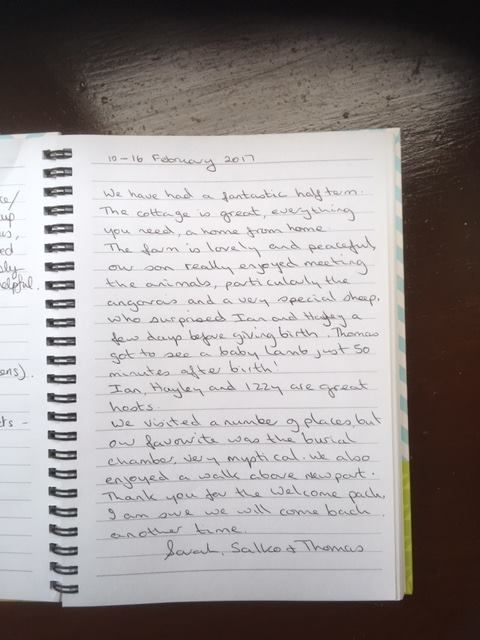 10-16 February 2017
We have had a fantastic half term.
The cottage is great, everything
you need, a home from home
The farm is lovely and peaceful,
our son really enjoyed meeting
the animals, particularly the
angoras and a very special sheep.
who surprised Ian and Hayley a
few days before giving birth. Thomas
got to see a baby lamb just 50
minutes after birth!
Ian, Hayley and Izzy are great
hosts.
We visited a number of places, but
our favourite was the burial
chamber, very mystical. We also
enjoyed a walk above Newport.
Thank you for the Welcome pack,
I am sure we will come back
another time.
Sarah, Salko + Thomas
up
us,
ed
helpful.
ens).
ts -